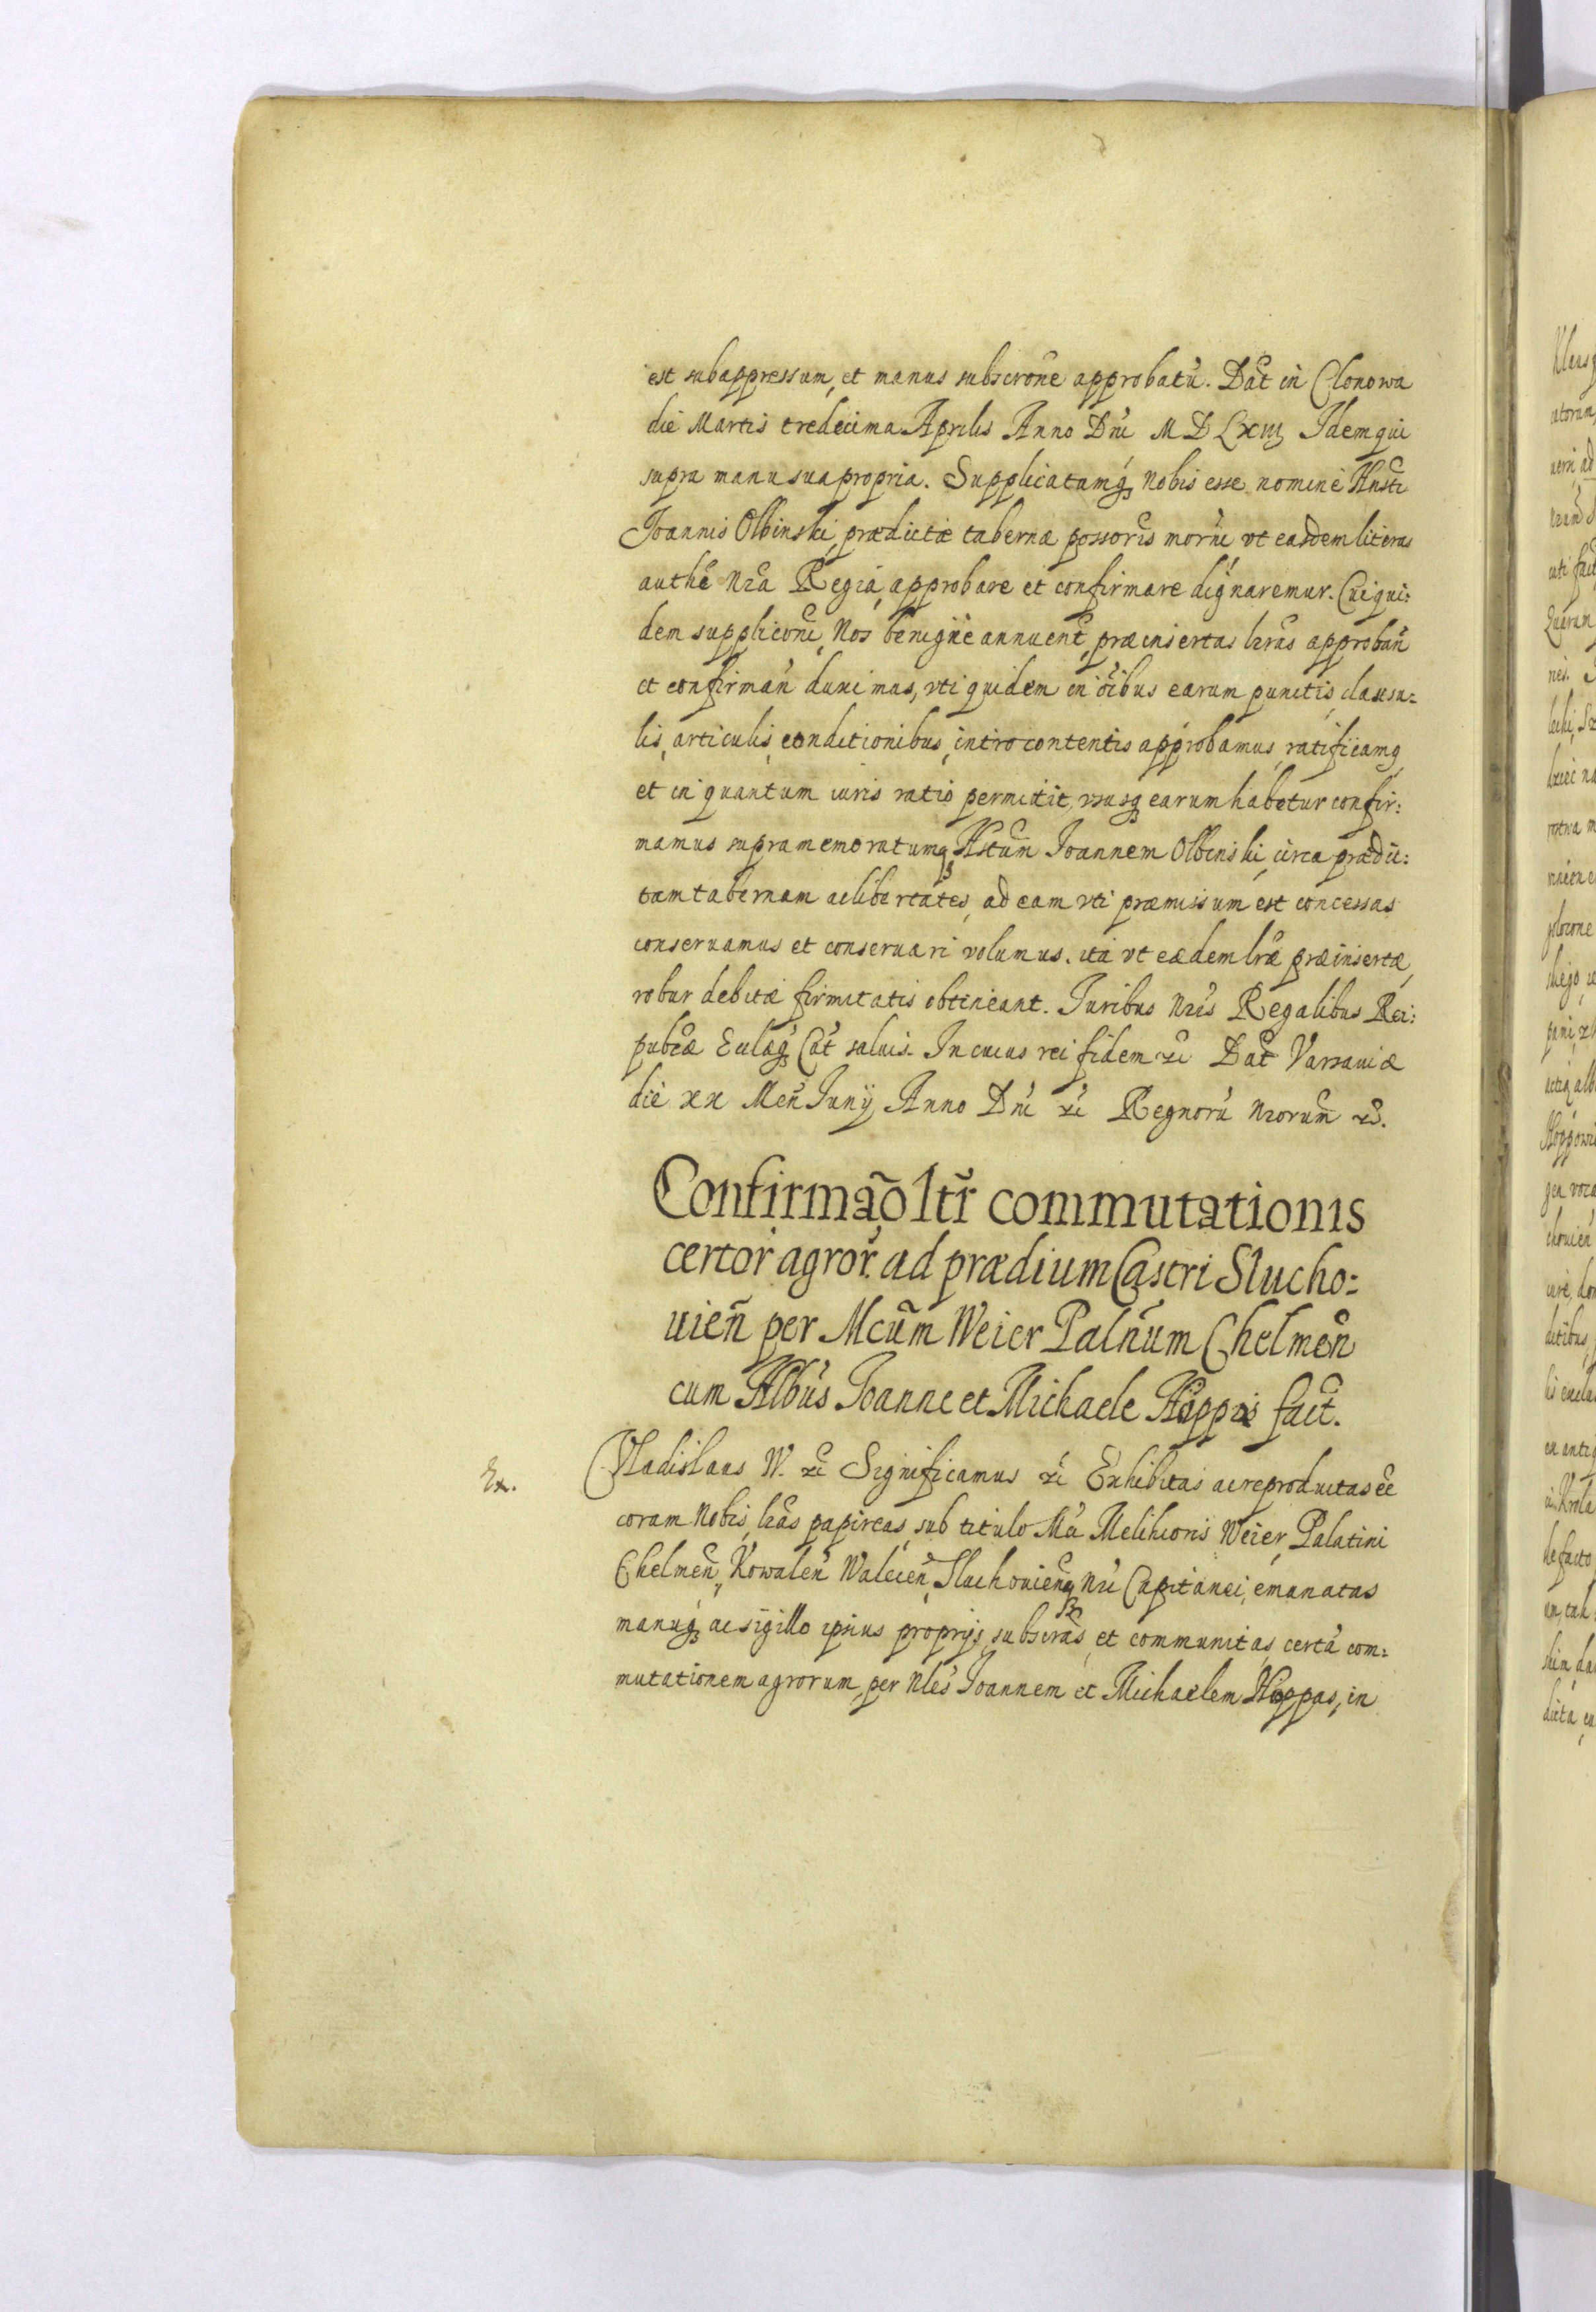 est subappressum, et manus subscrone approbatũ. Dat̃ in Clonowa
die Martis tredecima Aprilis Anno Dni M D Lxiij Idem qui
supra manu sua propria. Supplicatumq; nobis esse nomine Hnsti
Joannis Olbinski, prædictæ tabernæ possoris morni vt easdem literas
authe nra Regia, approbare et confirmare dignaremur. Cui qui:
dem suppliconi, Nos benigne annuent, præinsertas lras approban̄
et confirman̄ duximas, vti quidem in oibus earum punctis, clausu=
lis, articulis, conditionibus, intro contentis approbamus, ratificamq
et in quantum iuris ratio permittit, vsusq; earum habetur confir:
mamus supramemoratumq; Hstum Joannem Olbinski, circa prædic:
tam tabernam ac libertates, ad eam vti præmissum est concessas
conseruamus et conseruari volumus. ita vt eædem lræ præinsertæ,
robur debitæ firmitatis obtineant. Iuribus nris Regalibus Rei:
pubcæ Ecclæq; Cat saluis. In cuius rei fidem &c Dat Varsauiæ
die xx Men̄ Junij Anno Dni &c Regnorũ nrorum &c.
Confirmaõ ltr̃ commutationis
certor̃ agror̃ ad prædium Castri Slucho:
uien̄ per Mcũm Weier Palnum Chelmen̄
cum Nlbus Joanne et Michaele Hoppis fact.
Vladislaus W. &c Significamus &c Exhibitas ac reproductas ẽe
Ex.
coram Nobis, lras papireas, sub titulo Mci Melihioris Weier, Palatini
Chelmen̄, Kowalen̄ Walcien̄, Sluchouienq; Nri Capitanei, emanatas
manuq; ac sigillo ipsius proprijs, subscras, et communitas, certã com:
mutationem agrorum, per Nles Joannem et Michaelem Hoppas, in